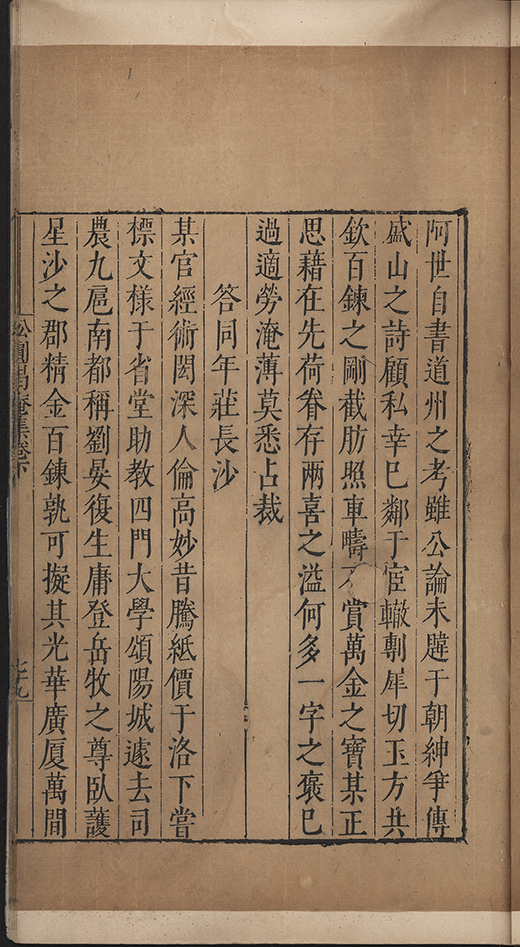 阿世自書道州之考雖公論未韙于朝紳爭傳
盛山之詩顧私幸已鄰于宦轍剸犀切玉方共
欽百鍊之剛截肪照車疇不賞萬金之寶某正
思藉在先荷眷存兩喜之溢何多一字之褒已
過適勞淹薄莫悉占裁
答同年莊長沙
某官經術閎深人倫高妙昔騰紙價于洛下嘗
標文樣于省堂助教四門大學頌陽城遽去司
農九扈南都稱劉晏復生庸登岳牧之尊臥護
星沙之郡精金百鍊孰可擬其光華廣厦萬間
松圓偈庵集卷下
七十九